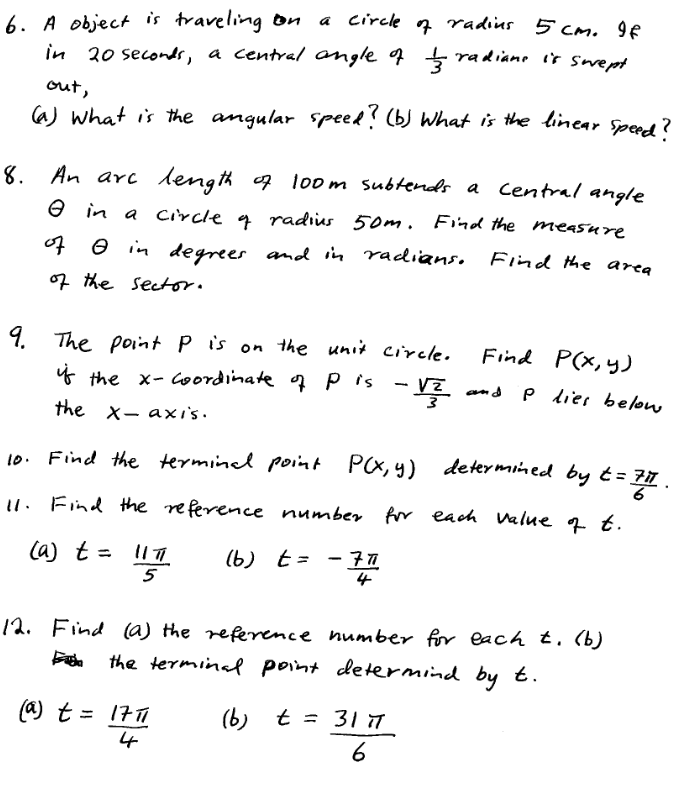 6. A object is traveling on a circle of radius 5 cm. If
in 20 seconds, a central angle of 1/3 radians is swept
out,
(a) What is the angular speed? (b) What is the linear speed?
8. An arc length of 100 m subtends a central angle
θ in a circle of radius 50m. Find the measure
of θ in degrees and in radians. Find the area
of the sector.
9. The point P is on the unit circle. Find P(x,y)
if the x-coordinate of P is -√2/3 and P lies below
the x-axis.
10. Find the terminal point P(x,y) determined by t = 7π/6.
11. Find the reference number for each value of t.
(a) t = 11π/5 (b) t = -7π/4
12. Find (a) the reference number for each t. (b)
the terminal point determind by t.
(a) t = 17π/4 (b) t = 31π/6